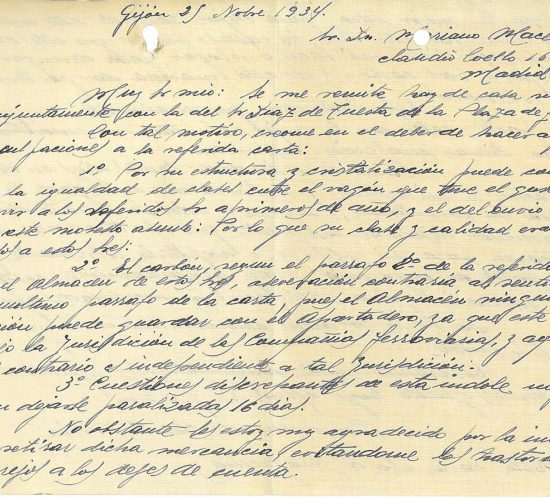 Gijón 25 Nobre 1934.
Sr. Dn. Mariano Mace
Claudio Coello 16
Madrid
Muy Sr mio: Se me remite hoy de casa su
juntamente con la del Sr Diaz de Tuesta de la Plaza de
Con tal motivo, income en el deber de hacer a
culpaciones a la referida carta:
1º Por su estructura y cristalización puede co
la igualdad de clases entre el vagón que tuve el gus
vir a los referidos Sr a primeros de año, y el del envio
este molesto asunto: Por lo que su clase y calidad era
a estos Sres:
2º El carbón, segun el passafo 2º de la referida
el Almacén de estos Sres, aseveración contraria al sent
ultimo passafo de la carta, pues el Almacén ningun
ión puede guardar con el Apartadero, ya que este
jo la Jurisdición de las Compañias ferroviarias, y aq
contrario es independiente a tal Jurisdición.
3º Cuestiones discrepantes de esta indole n
dejarse paralizados 16 dias.
No obstante les estoy muy agradecido por la in
retirar dicha mercancia, costandome los gastos
a los dejes de cuenta.